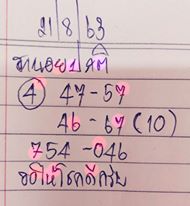 21/8/63
ฮานอยปกติ
④ 47-57
46-67(10)
754-046
ขอให้โชคดีครับ